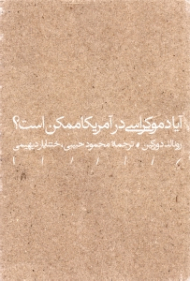 آیا دموکراسی در آمریکا ممکن است؟
رونالد دورکین • ترجمه محمود حبیبی، خشایار دیهیمی